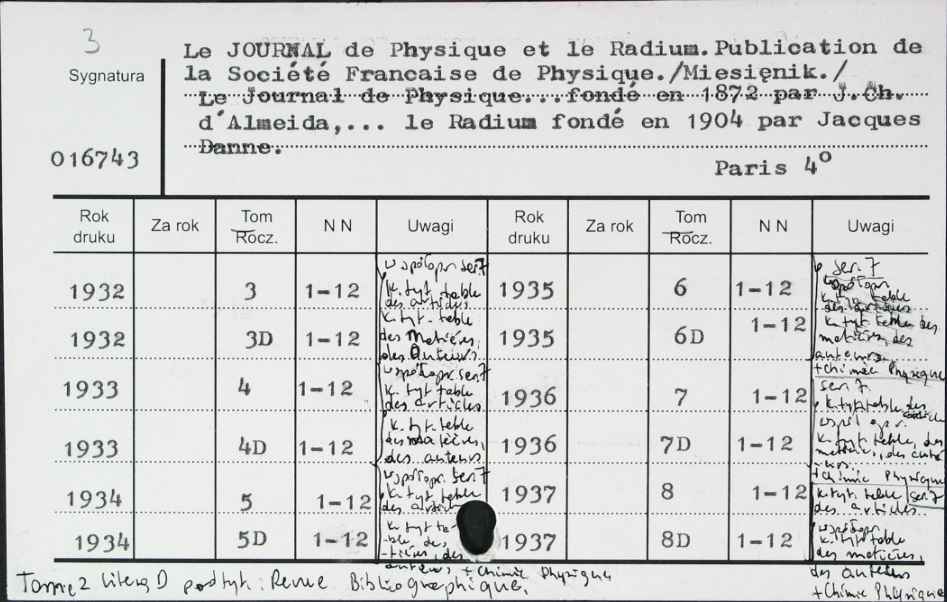 3
Sygnatura
016743
Le JOURNAL de Physique et le Radium. Publication de
la Société Francaise de Physique./Miesięnik./
Le Journal de Physique...fondé en 1872 par J.Ch.
d'Almeida,... le Radium fondé en 1904 par Jacques
Danne.
Paris 4º
Rok druku Za rok Tom Rocz. N N Uwagi Rok druku Za rok Tom Rocz. N N Uwagi
1932 3 1-12 współopr. ser. 7 k. tyt. table des articles 1935 6 1-12 ser. 7 współopr. k. tyt. table des articles
1932 3D 1-12 k. tyt. table des Matières, des Auteurs 1935 6D 1-12 k. tyt. table des matières, des auteurs + Chimie Physique
1933 4 1-12 współopr. ser. 7 k. tyt. table des articles 1936 7 1-12 ser. 7. k. tyt. table des
1933 4D 1-12 k. tyt. table des matières, des auteurs 1936 7D 1-12 współopr. k. tyt. table, des matières, des + Chimie Physique
1934 5 1-12 współopr. ser. 7 k. tyt. table des 1937 8 1-12 k. tyt. table ser. 7 des articles
1934 5D 1-12 k. tyt. des auteurs + Chimie Physique 1937 8D 1-12 współopr. k. tyt. table des matières, des auteurs + Chimie Physique
Tomy z literą D podtyt.: Revue Bibliographique.